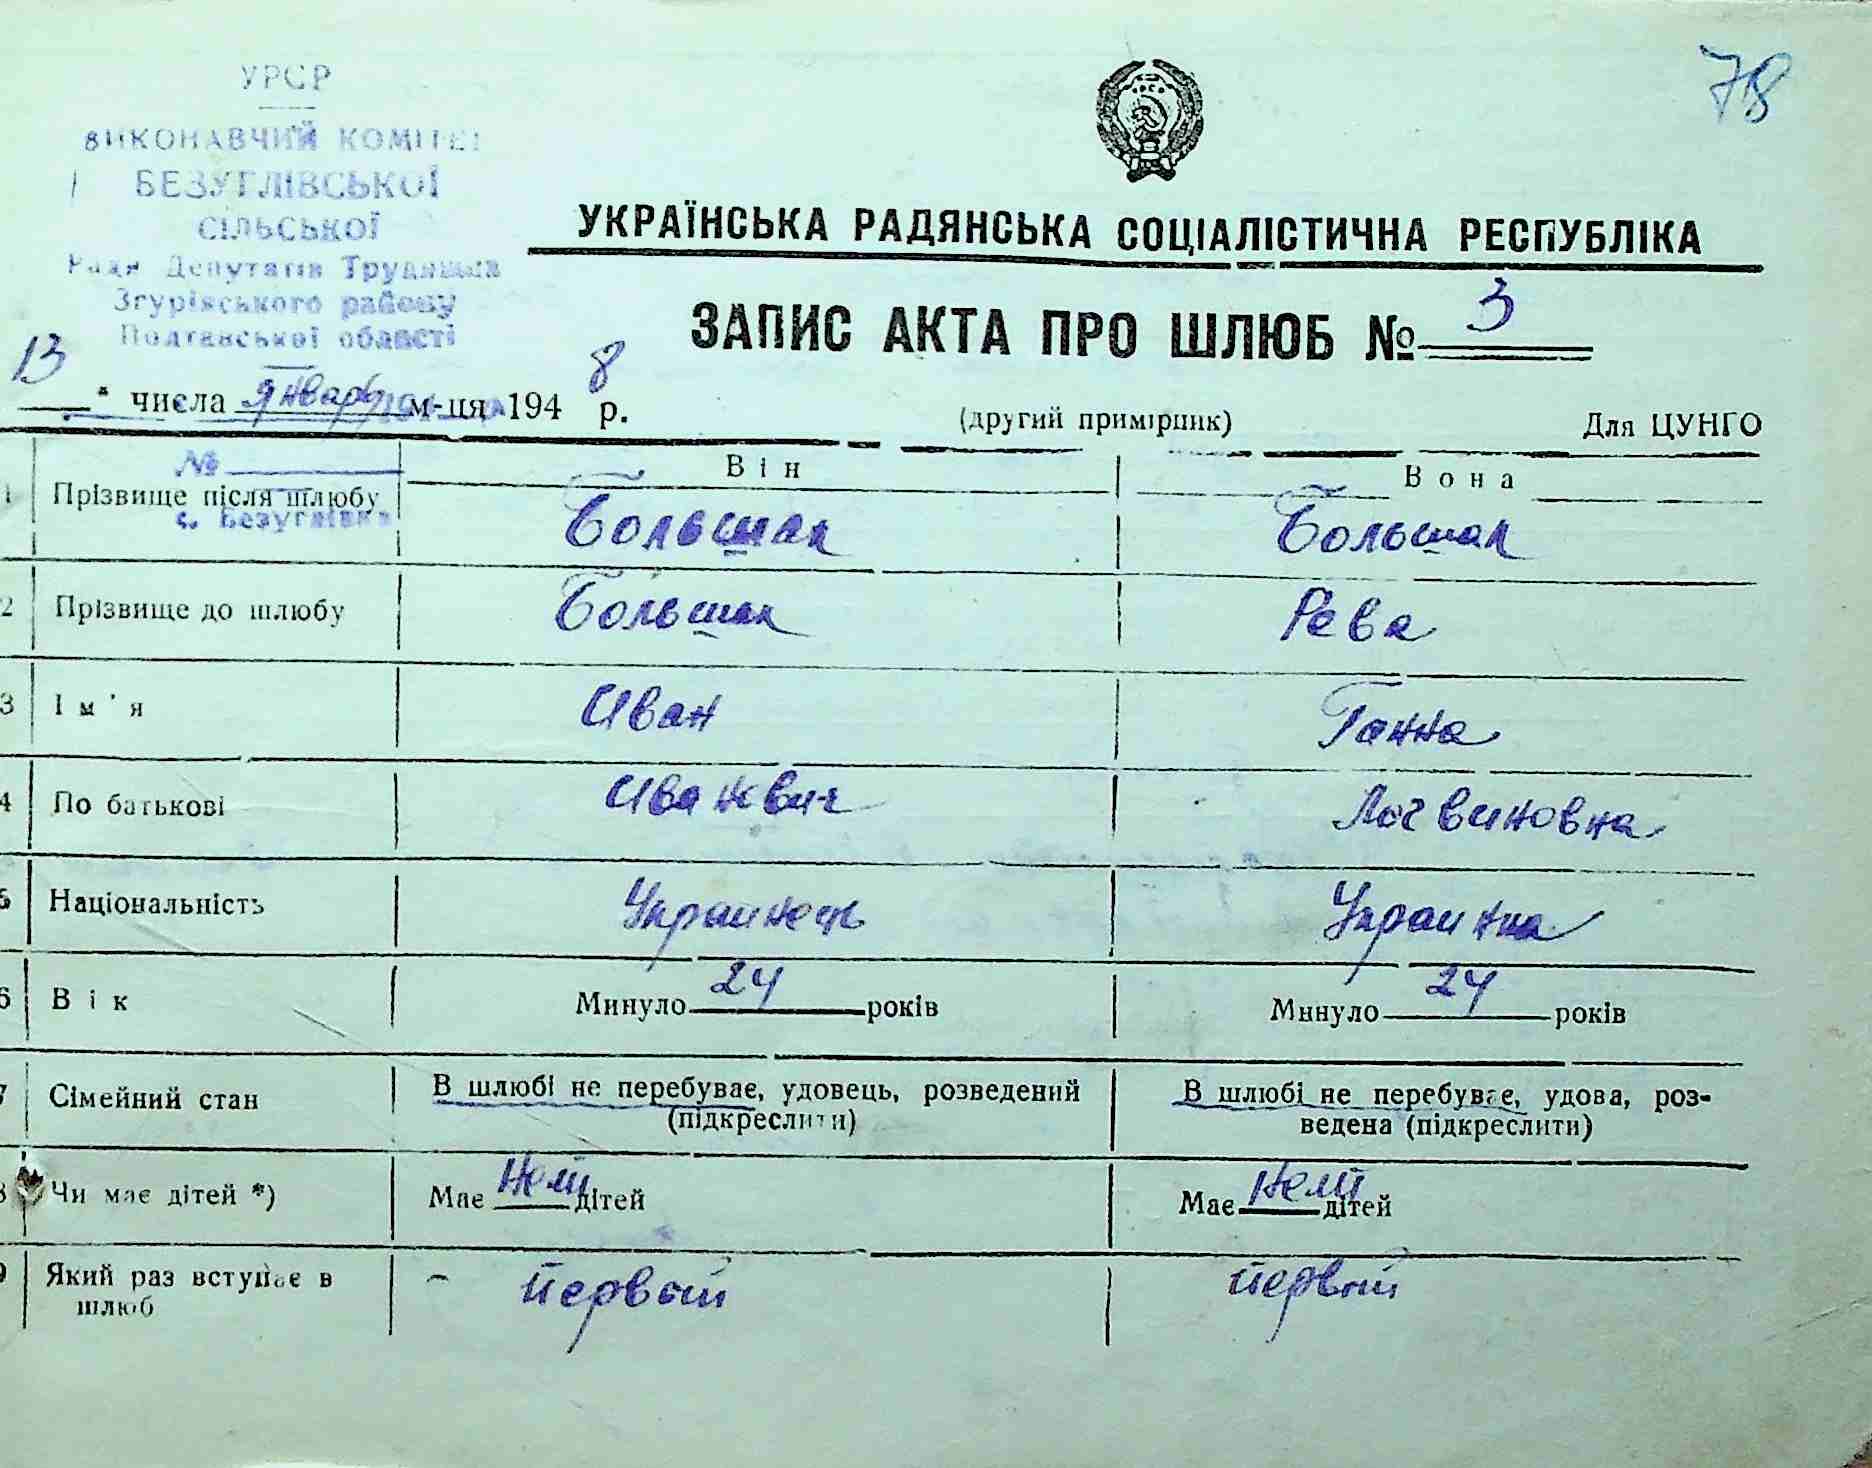 78
УРСР
ВИКОНАВЧИЙ КОМІТЕТ
БЕЗУГЛІВСЬКОЇ
СІЛЬСЬКОЇ
Ради Депутатів Трудящих
Згурівського району
Полтавської області
УКРАЇНСЬКА РАДЯНСЬКА СОЦІАЛІСТИЧНА РЕСПУБЛІКА
ЗАПИС АКТА ПРО ШЛЮБ № 3
13 " числа январь м-ця 1948 р.
(другий примірник) Для ЦУНГО
№
с. Безуглівка
Він Вона
1 Прізвище після шлюбу Большак Большак
2 Прізвище до шлюбу Большак Рева
3 Ім'я Иван Ганна
4 По батькові Иванович Логвиновна
5 Національність Украинець Украинка
6 Вік Минуло 24 років Минуло 24 років
7 Сімейний стан В шлюбі не перебуває, удовець, розведений (підкреслити) В шлюбі не перебуває, удова, роз-
ведена (підкреслити)
8 Чи має дітей *) Має нет дітей Має нет дітей
9 Який раз вступає в шлюб - первый первый